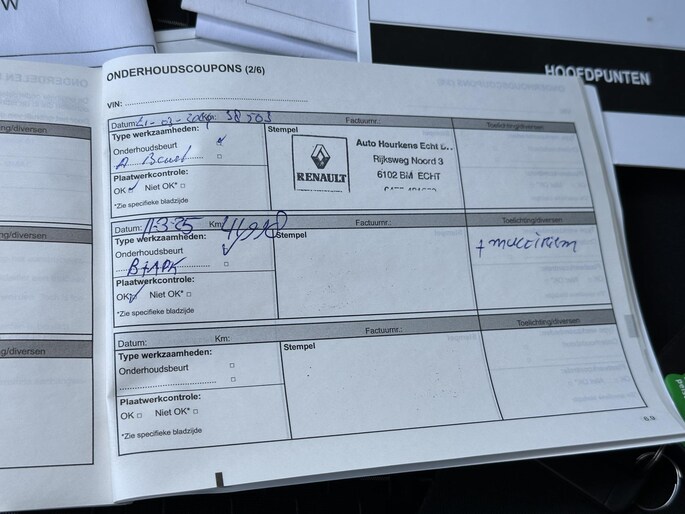 W
HOOFDPUNTEN
ONDERHOUDSCOUPONS (2/6)
VIN:
Datum: 21-03-2024 38503
Factuurnr.:
Toelichting/diversen
Type werkzaamheden:
Onderhoudsbeurt
A Beurt
Plaatwerkcontrole:
OK Niet OK*
*Zie specifieke bladzijde
Stempel
RENAULT
Auto Hourkens Echt B.
Rijksweg Noord 3
6102 BM ECHT
Datum: 11-3-25 Km:
Factuurnr.:
Toelichting/diversen
Type werkzaamheden:
Onderhoudsbeurt
B+APK
Plaatwerkcontrole:
OK Niet OK*
*Zie specifieke bladzijde
Stempel
+ multiriem
Datum: Km:
Factuurnr.:
Toelichting/diversen
Type werkzaamheden:
Onderhoudsbeurt
Plaatwerkcontrole:
OK Niet OK*
*Zie specifieke bladzijde
Stempel
ng/diversen
ng/diversen
g/diversen